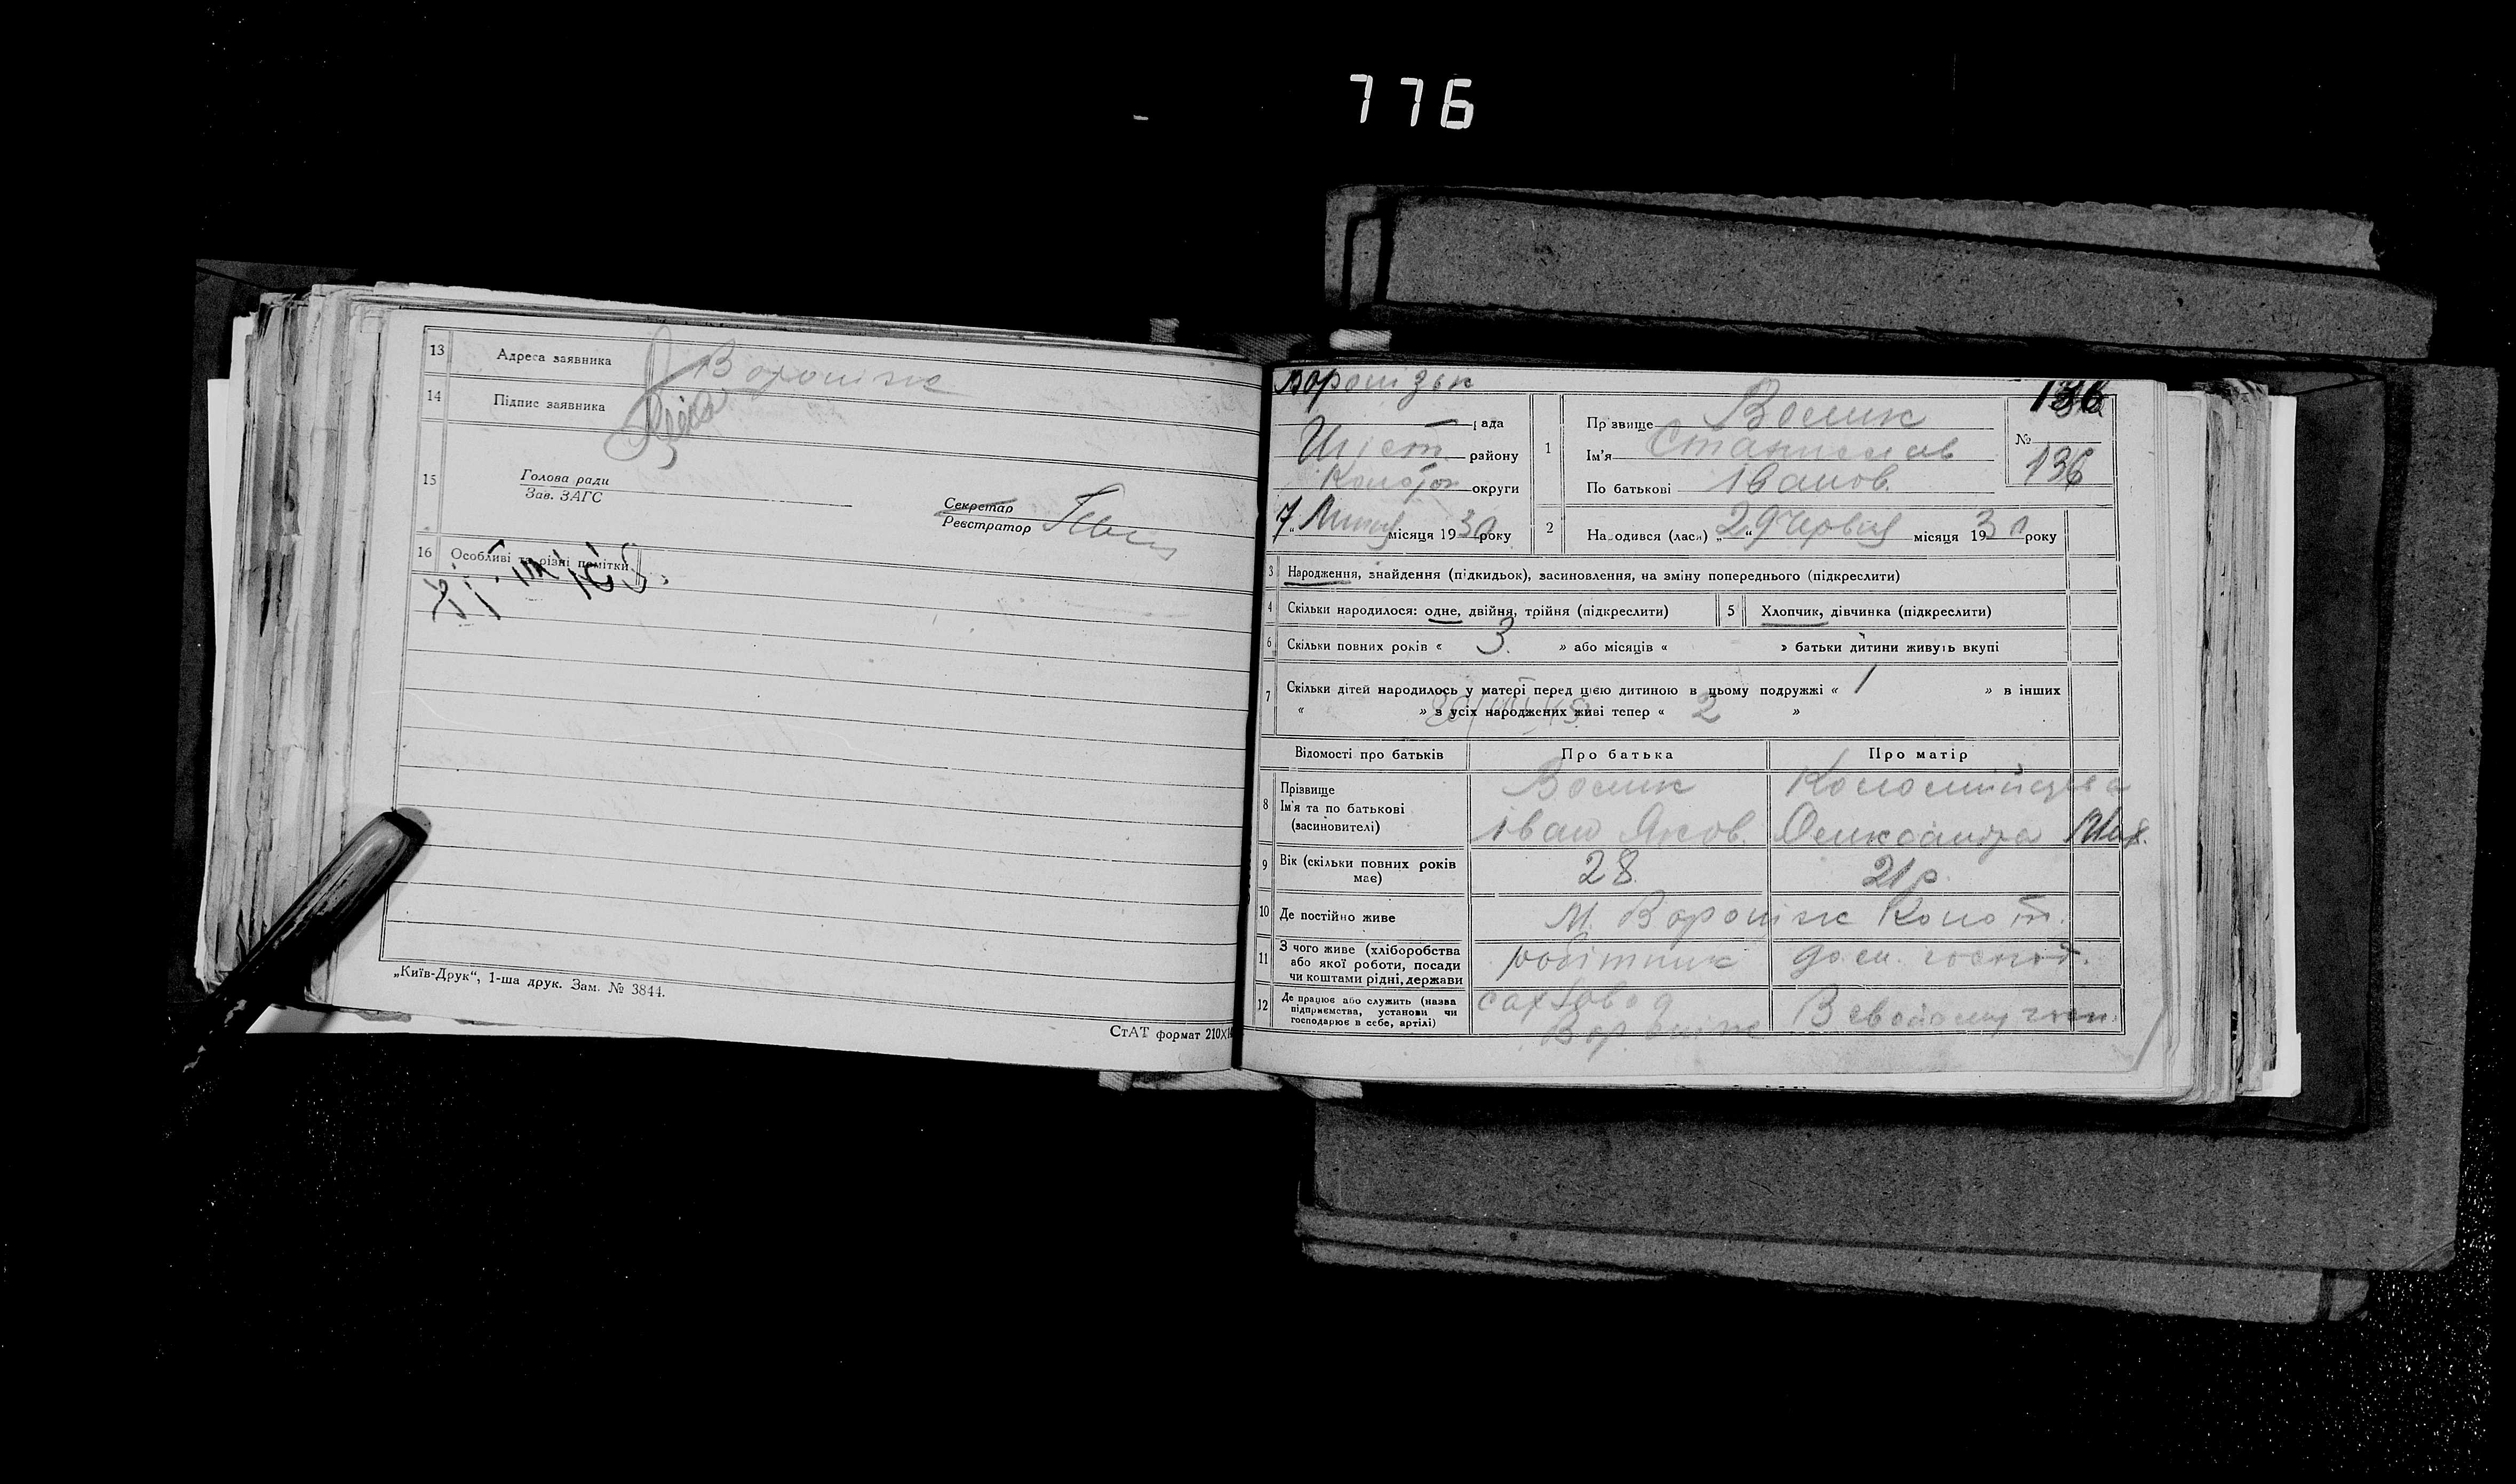 776
13 Адреса заявника Вороніж
14 Підпис заявника
15 Голова ради
Зав. ЗАГС
Секретар
Реєстратор
16 Особливі та різні помітки
„Київ-Друк“, 1-ша друк. Зам. № 3844.
СтАТ формат 210
136
рада
Шіст. району
Конотоп округи
7 Липня місяця 1930 року
1 Прізвище Волик
Ім'я Станислав
По батькові Іванов.
№ 136
2 Народився (лася) „29“ Червня місяця 1930 року
3 Народження, знайдення (підкидьок), засиновлення, на зміну попереднього (підкреслити)
4 Скільки народилося: одне, двійня, трійня (підкреслити)
5 Хлопчик, дівчинка (підкреслити)
6 Скільки повних років « 3 » або місяців « » батьки дитини живуть вкупі
7 Скільки дітей народилось у матері перед цією дитиною в цьому подружжі « 1 » в інших
« » з усіх народжених живі тепер « 2 »
Відомості про батьків Про батька Про матір
8 Прізвище
Ім'я та по батькові
(засиновителі)
Волик
Іван Яков.
Коломийцева
Олександра Мих.
9 Вік (скільки повних років
має)
28
21 р.
10 Де постійно живе м. Вороніж Конот.
11 З чого живе (хліборобства
або якої роботи, посади
чи коштами рідні, держави
робітник
дом. господ.
12 Де працює або служить (назва
підприємства, установи чи
господарює в себе, артілі)
сахзавод
Вороніж
В своєму госп.